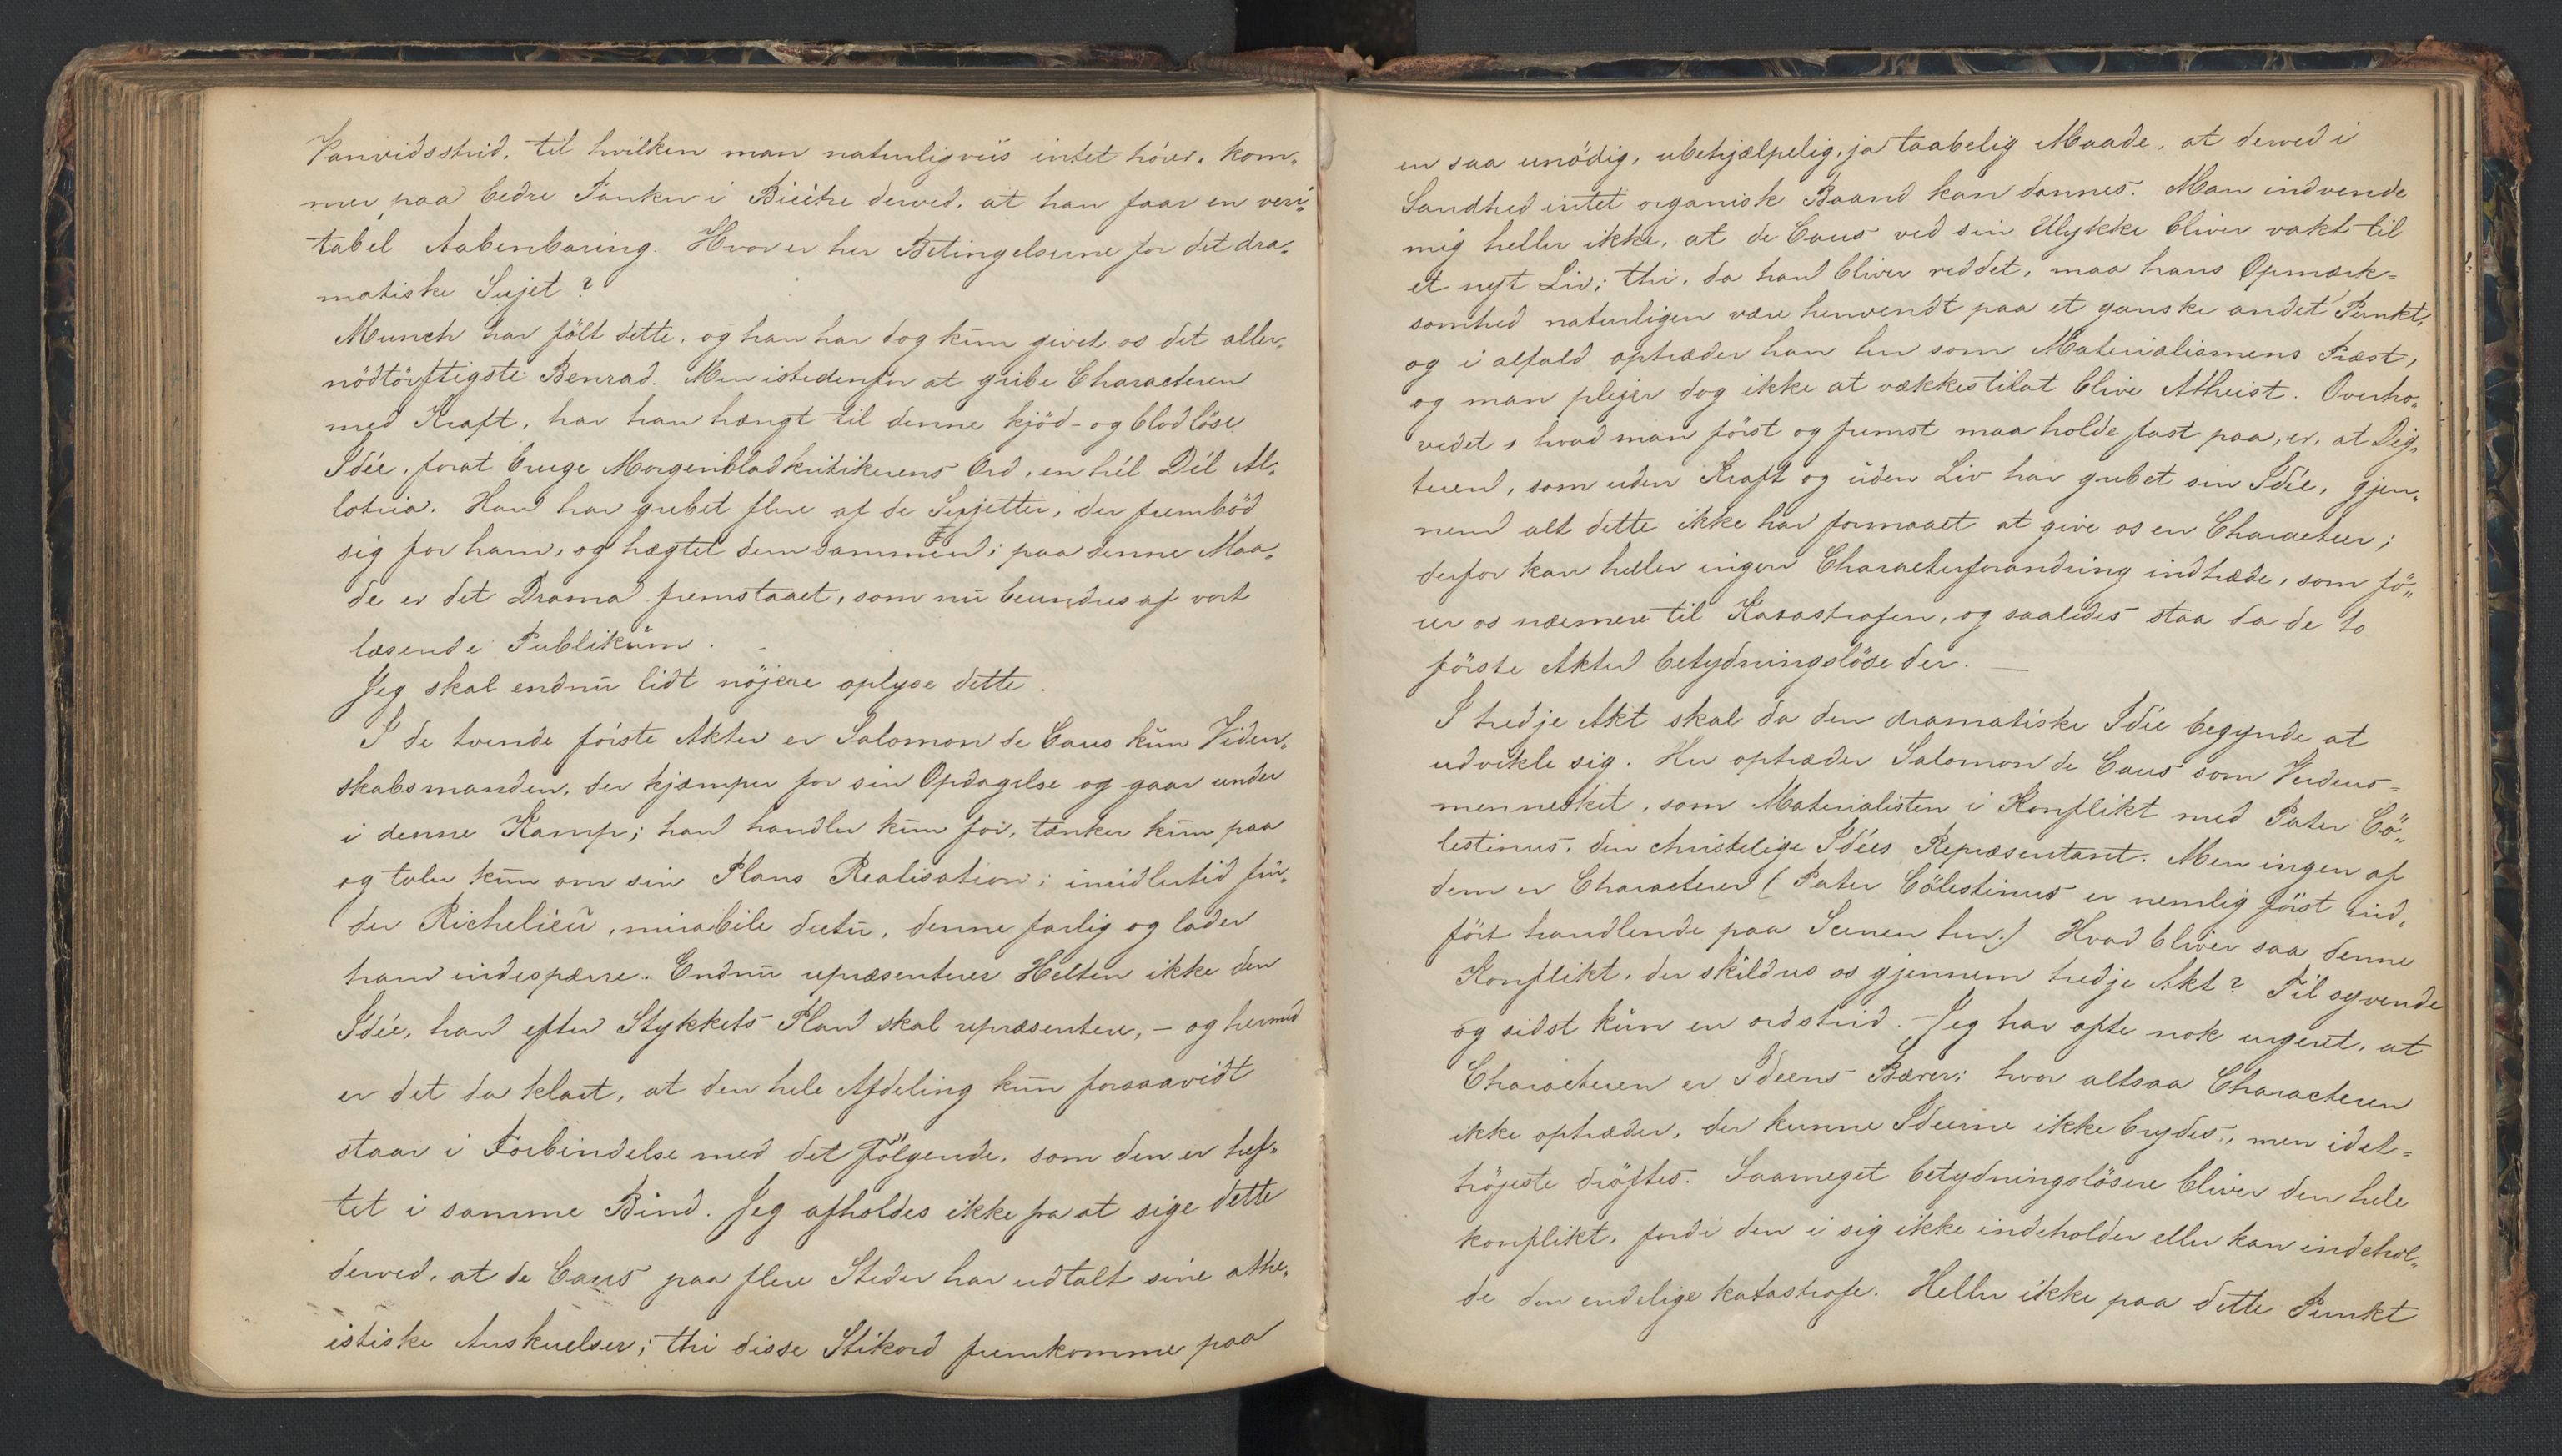 Vanvidsstrid, til hvilken man naturligviis intet hörer, kom-
mer paa bedre Tanker i Bicétre derved, at han faar en veri-
tabel Aabenbaring. Hvor er her Betingelserne for det dra-
matiske Sujet?
Munch har fölt dette, og han har dog kun givet os det aller-
nödtörftigste Benrad. Men istedenfor at gribe Characteren
med Kraft, har han hængt til denne kjöd- og blodlöse
Idée, forat bruge Morgenbladkritikerens Ord, en hel Dél Al-
lotria. Han har grebet flere af de Sujetter, der frembød
sig for ham, og hægtet dem sammen; paa denne Maa-
de er det Drama fremstaaet, som nu beundres af vort
læsende Publikum.
Jeg skal endnu lidt nöjere oplyse dette.
I de tvende förste Akter er Salomon de Caus kun Viden-
skabsmanden, der kjæmper for sin Opdagelse og gaar under
i denne Kamp; han handler kun for, tænker kun paa
og taler kun om sin Plans Realisation; imidlertid fin-
der Richelieu, mirabile dictu, denne farlig og lader
ham indespærre. Endnu repræsenterer Helten ikke den
Idée, han efter Stykkets Plan skal repræsentere, – og hermed
er det da klart, at den hele Afdeling kun forsaavidt
staar i Forbindelse med det Fölgende, som den er hef-
tet i samme Bind. Jeg afholdes ikke fra at sige dette
derved, at de Caus paa flere Steder har udtalt sine athe-
istiske Anskuelser; thi disse Stikord fremkomme paa
en saa unödig, ubehjælpelig, ja taabelig Maade, at derved i
Sandhed intet organisk Baand kan dannes. Man indvende
mig heller ikke, at de Caus ved sin Ulykke bliver vakt til
et nyt Liv; thi, da han bliver reddet, maa hans Opmærk-
somhed naturligen være henvendt paa et ganske andet Punkt,
og i alfald optræder han her som Materialismens Præst,
og man plejer dog ikke at vækkes til at blive Atheist. Overho-
vedet, hvad man först og fremst maa holde fast paa, er, at Dig-
teren, som uden Kraft og uden Liv har grebet sin Idée, gjen-
nem alt dette ikke har formaaet at give os en Character;
derfor kan heller ingen Characterforandring indtræde, som fö-
rer os nærmere til Katastrofen, og saaledes staa da de to
förste Akter betydningslöse der. —
I tredje Akt skal da den dramatiske Idée begynde at
udvikle sig. Her optræder Salomon de Caus som Verdens-
mennesket, som Materialisten i Konflikt med Pater Cö-
lestinus, den christelige Idées Repræsentant. Men ingen af
dem er Characterer (Pater Cölestinus er nemlig först ind-
fört handlende paa Scenen her.) Hvad bliver saa denne
Konflikt, der skildres os gjennem tredje Akt? Til syvende
og sidst kun en ordstrid. – Jeg har ofte nok urgeret, at
Characteren er Ideens Bærer; hvor altsaa Characteren
ikke optræder, der kunne Ideerne ikke brydes, men idet-
höjeste dröftes. Saameget betydningslösere bliver den hele
konflikt, fordi den i sig ikke indeholder eller kan indehol-
de den endelige katastrofe. Heller ikke paa dette Punkt